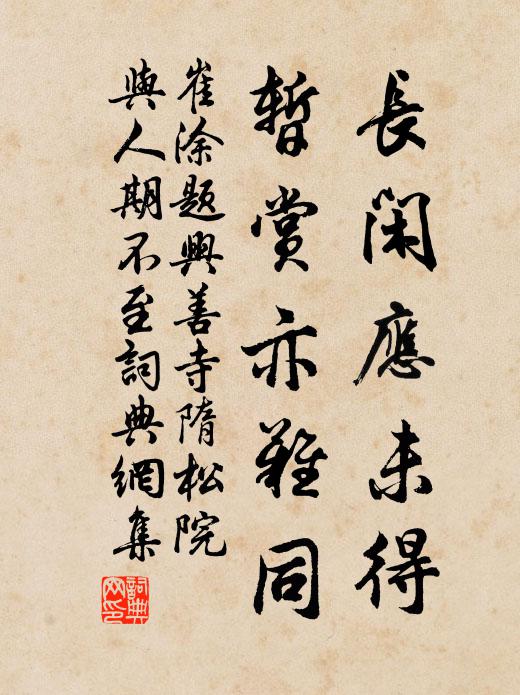 長閑應未得
暫賞亦難同
崔涂題興善寺隋松院
與人期不至詞典網集
詞典網印